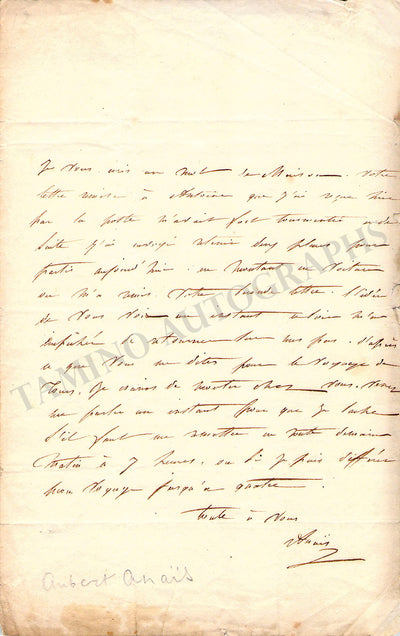 Je vous écris un mot de Maison. votre
lettre à Antoine que j'ai reçue hier
par la poste m'avait fort tourmentée
suite j'ai envoyé retenir cinq places pour
partir aujourd'hui. en montant en voiture
on m'a remis votre lettre. l'idée
de vous voir un instant m'a
empêchée de retourner sur mes pas. d'après
ce que vous me dites pour le voyage de
Tours, je crains de monter chez vous. venez
me parler un instant pour que je sache
s'il faut me remettre en route demain
matin à 7 heures, ou si je puis différer
mon voyage jusqu'à
toute à vous
Anaïs
Aubert Anaïs
TAMINO AUTOGRAPHS